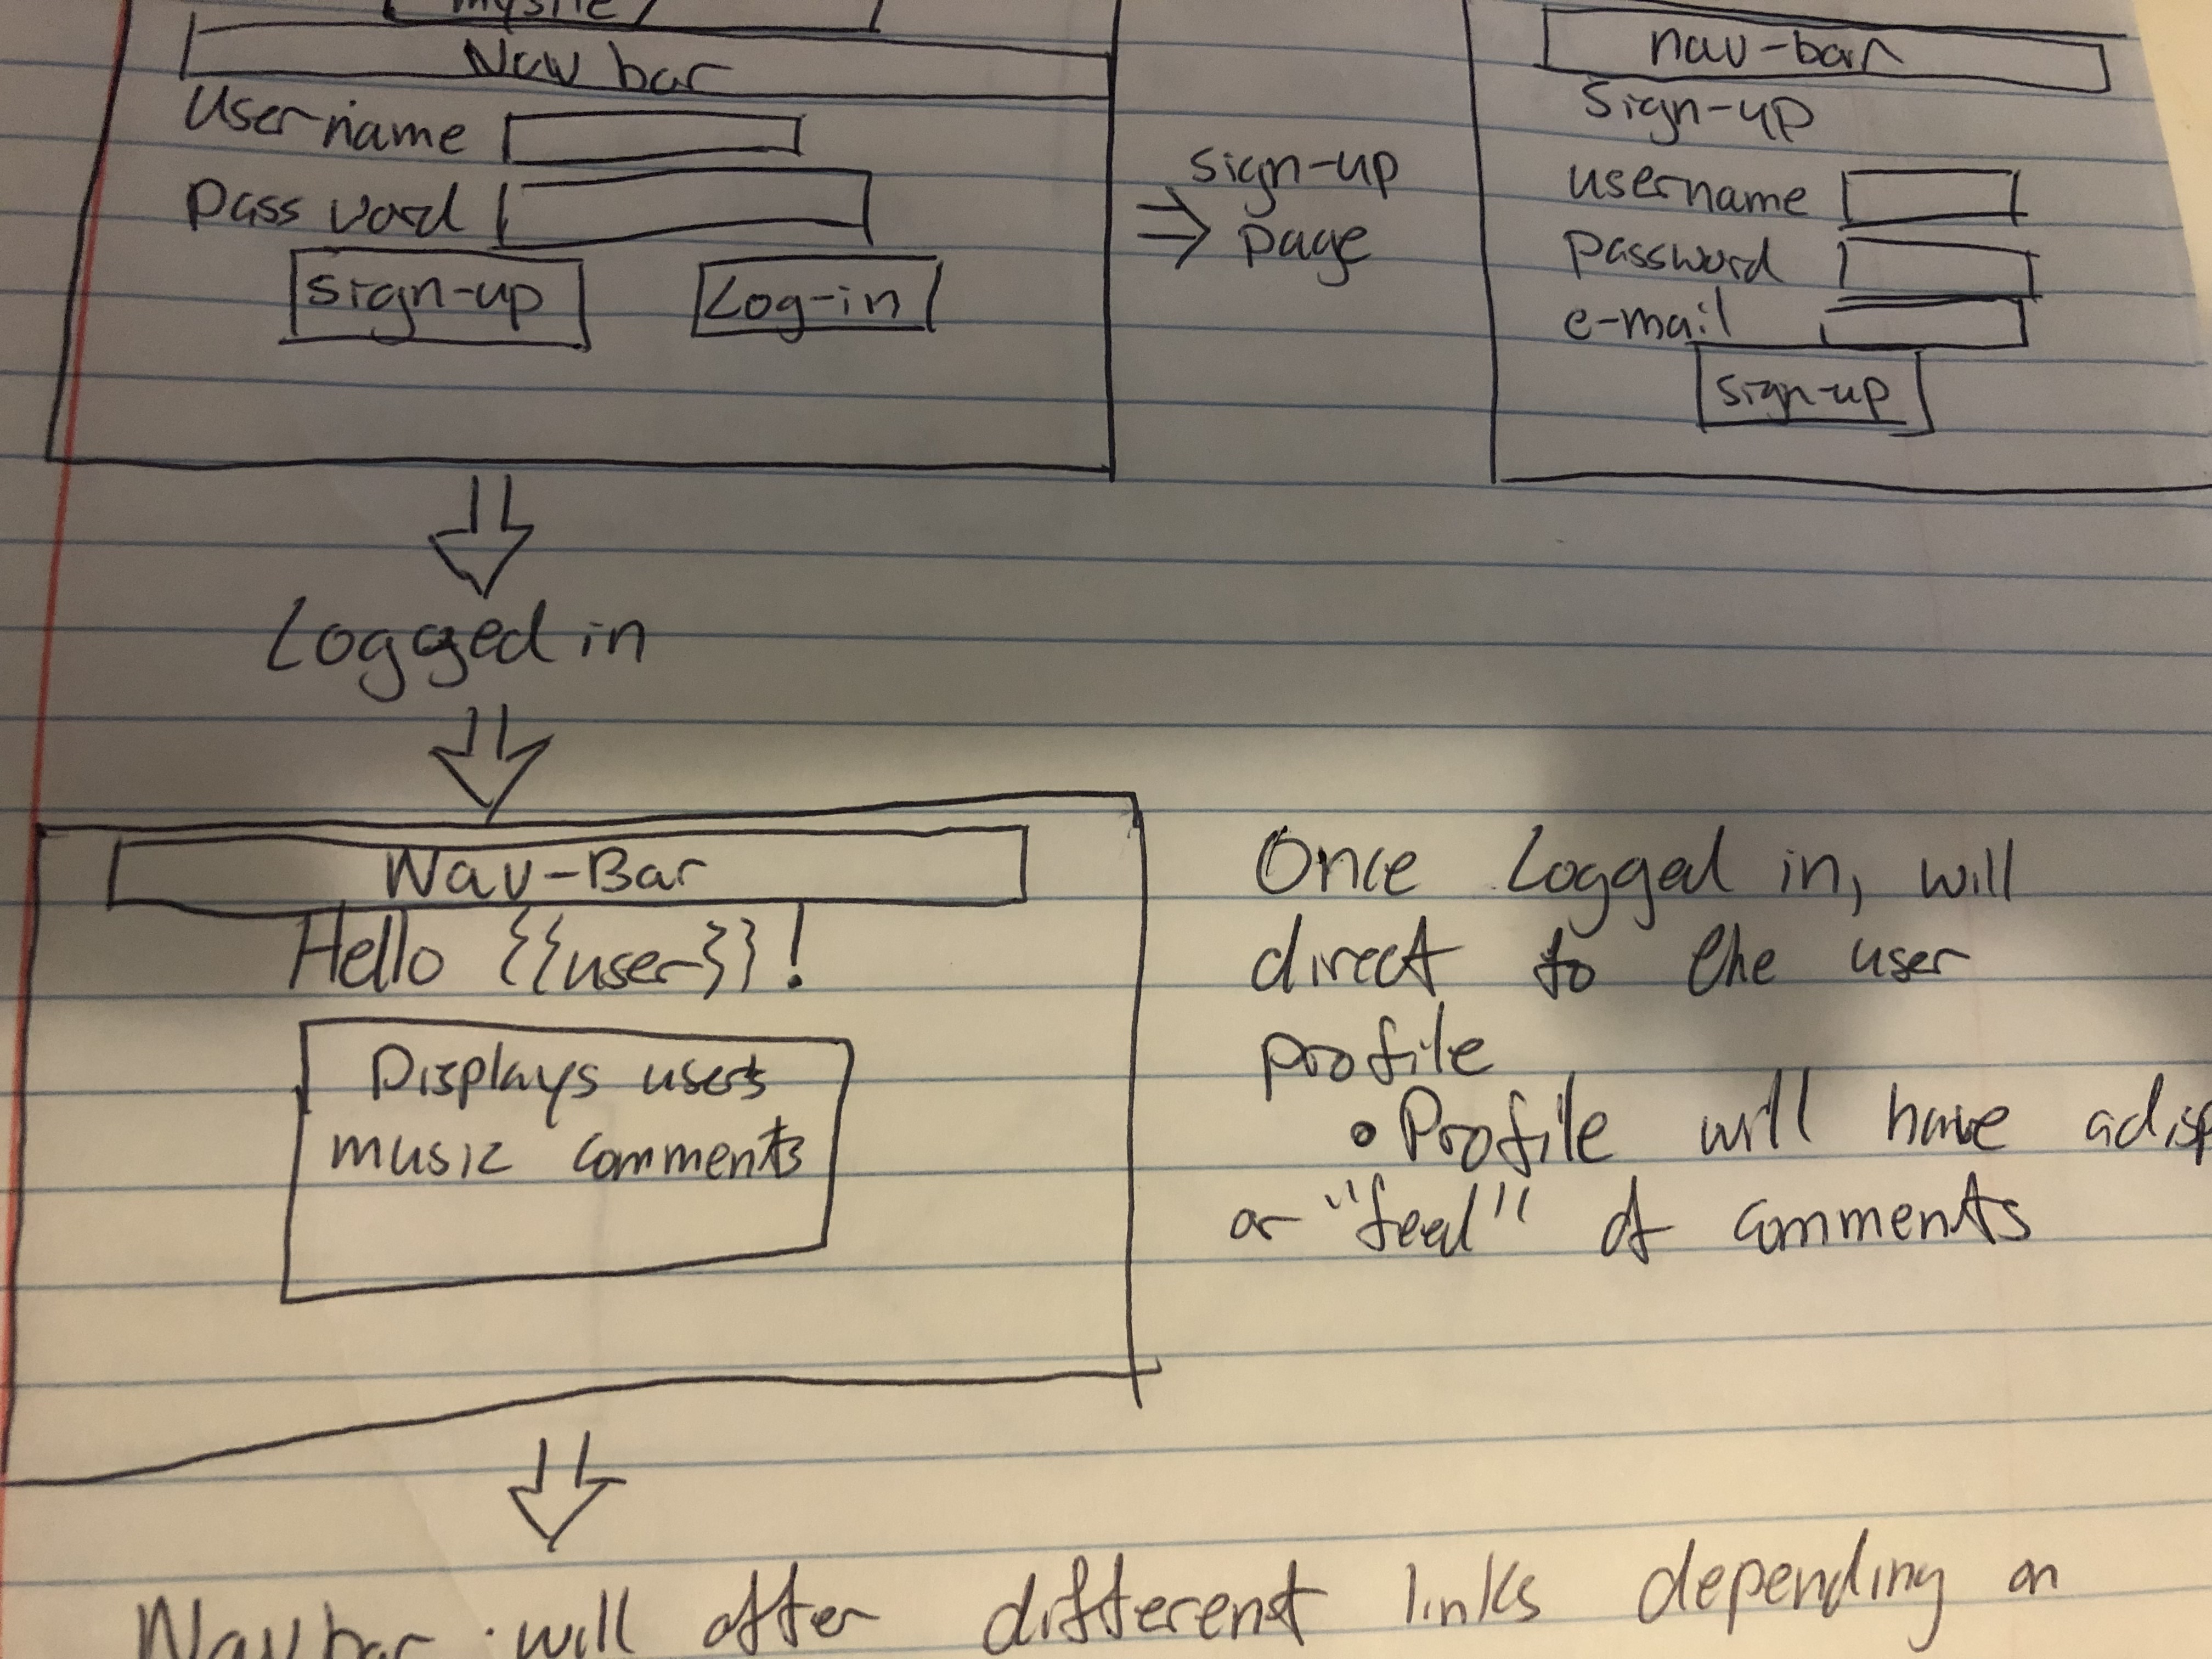 mysite/
Nav bar
Username
Password
sign-up
Log-in
sign-up
page
nav-bar
Sign-up
username
password
e-mail
sign-up
Logged in
Nav-Bar
Hello {{user}}!
Displays users
music comments
Once Logged in, will
direct to the user
profile
• Profile will have a disp
or "feed" of comments
Navbar will offer different links depending on